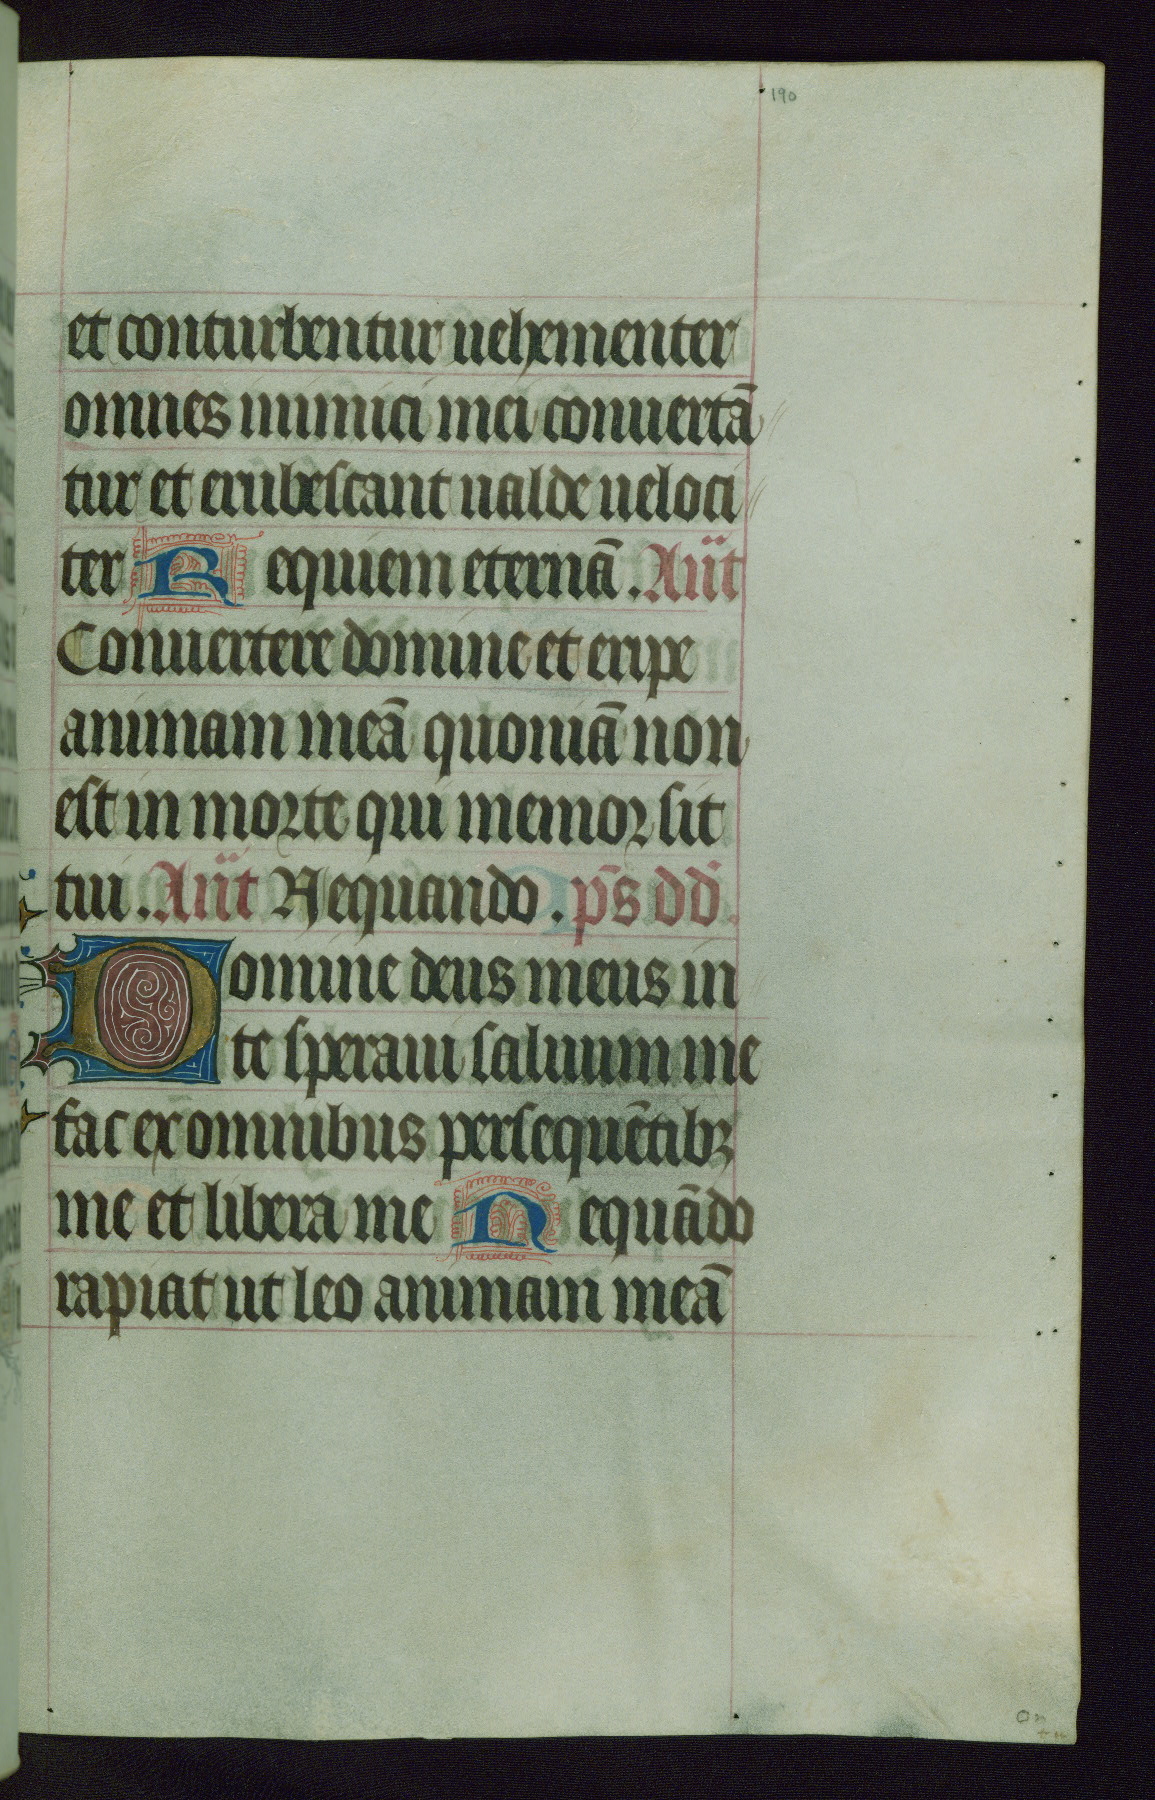 190
et conturbentur uehementer
omnes inimici mei conuertā
tur et erubescant ualde ueloci
ter Requiem eternā. Añt
Conuertere domine et eripe
animam meā quoniā non
est in morte qui memor sit
tui. Añt Nequando. p̄s dd̄.
Domine deus meus in
te speraui saluum me
fac ex omnibus persequētibꝫ
me et libera me Nequādo
rapiat ut leo animam meā